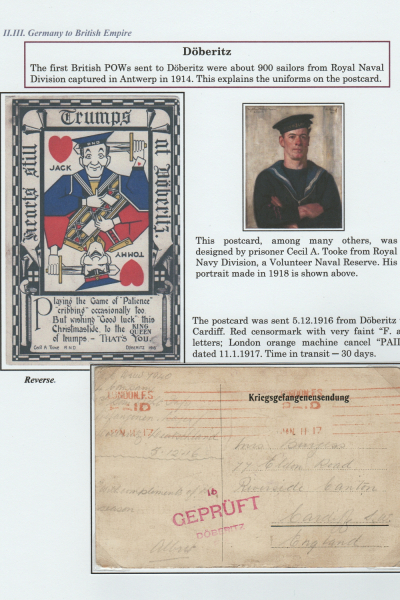 II.III. Germany to British Empire
Döberitz
The first British POWs sent to Döberitz were about 900 sailors from Royal Naval
Division captured in Antwerp in 1914. This explains the uniforms on the postcard.
Hearts still
Trumps
at Döberitz.
JACK
TOMMY
Playing the Game of "Patience"
"cribbing" occasionally too.
But wishing "Good luck" this
Christmastide, to the KING QUEEN
of trumps – THAT'S YOU.
Cecil A. Tooke R.N.D.
DÖBERITZ 1916
This postcard, among many others, was
designed by prisoner Cecil A. Tooke from Royal
Navy Division, a Volunteer Naval Reserve. His
portrait made in 1918 is shown above.
The postcard was sent 5.12.1916 from Döberitz
Cardiff. Red censormark with very faint "F. a
letters; London orange machine cancel "PAID
dated 11.1.1917. Time in transit — 30 days.
Reverse.
Kriegsgefangenensendung
JAN 11 17
5.12.16
Mrs Burgess
Riverside Canton
Cardiff
England
16
GEPRÜFT
DÖBERITZ